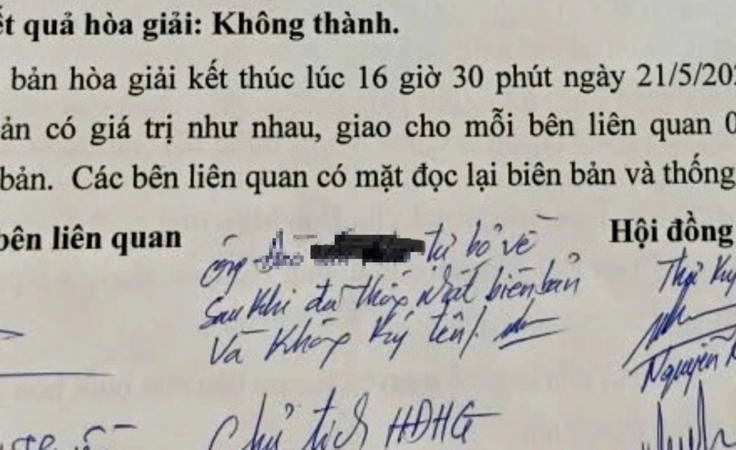 ết quả hòa giải: Không thành.
bản hòa giải kết thúc lúc 16 giờ 30 phút ngày 21/5/202
ản có giá trị như nhau, giao cho mỗi bên liên quan 0
bản. Các bên liên quan có mặt đọc lại biên bản và thống
bên liên quan
Hội đồng
ông tự bỏ về
Sau khi đã thống nhất biên bản
Và không ký tên/.
Thư ký
Nguyễn
Chủ tịch HĐHG